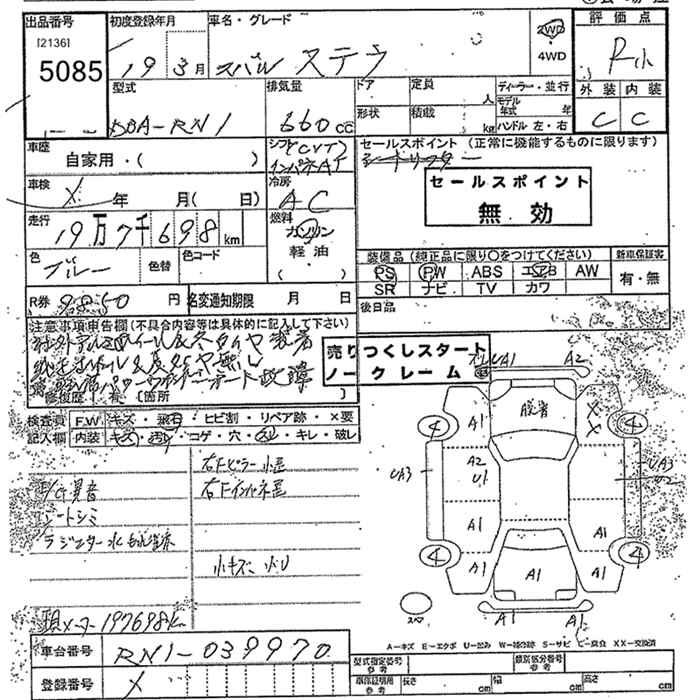 出品番号 初度登録年月 車名・グレード 評価点
[2136]
5085 19 3月 スバル ステラ 2WD・4WD R小
型式 排気量 ドア 定員 人 ディーラー・並行 外装 内装
DBA-RN1 660cc 形状 積載 kg モデル年式 年 ハンドル 左・右 C C
車歴 自家用・( ) シフト(CVT) インパネAT セールスポイント (正常に機能するものに限ります)
シートリフター
車検 X 年 月( 日) 冷房 AC セールスポイント
無効
走行 19万7千698km 燃料 ガソリン 軽油 ( )
色 ブルー 色替 色コード 装備品(純正品に限り○をつけてください) 新車保証書
PS PW ABS エアB AW 有・無
SR ナビ TV カワ
R券 円 名変通知期限 月 日 後日品
注意事項申告欄(不具合内容等は具体的に記入して下さい)
社外アルミホイール&冬タイヤ装着
純正ホイール&夏タイヤ無し
パワーウインドー 故障
修復歴 有 (箇所
売りつくしスタート
ノークレーム
検査員 F.W キズ・飛石・ヒビ割・リペア跡・×要
記入欄 内装 キズ・汚れ・コゲ・穴・スレ・キレ・破レ
右Fピラー小歪
E/G異音 右Fインパネ歪
シートシミ
ラジエター水もれ
小キズ 小U
現メーター197698k
UA1 A2
脱着
4 A1 X X 4
UA3 A2 U1 UA3 U2
A1 A1
4 A1 A1 A1 4
スペア A1 A1
A=キズ E=エクボ U=凹み W=補修跡 S=サビ C=腐食 XX=交換済
車台番号 RN1-039970
登録番号 X
型式指定番号 参考 類別区分番号 参考
車庫証明用 参考 長さ cm 幅 cm 高さ cm